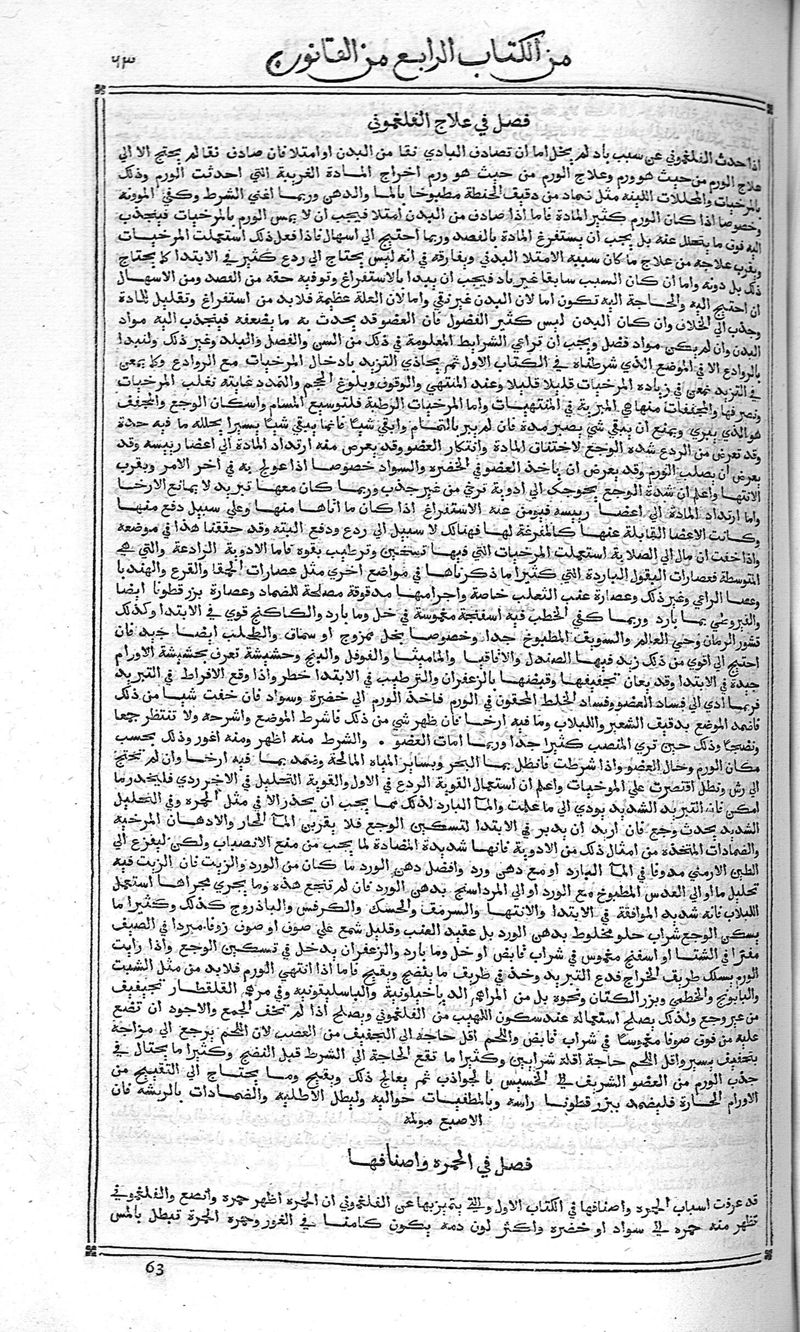 من الكتاب الرابع من القانون
٦٣
فصل في علاج الفلغموني
اذا حدث الفلغموني عن سبب باد لم يخل اما ان تصادف البادي نقا من البدن او امتلا فان صادف نقا لم يحتج الا الي
علاج الورم من حيث هو ورم وعلاج الورم من حيث هو ورم اخراج المادة الغريبة التي احدثت الورم وذلك
بالمرخيات والمحللات اللينه مثل ضماد من دقيف الحنطة مطبوخا بالما والدهن وربما اغني الشرط وكفي المونه
وخصوصا اذا كان الورم كثير المادة فاما اذا صادف من البدن امتلا فيجب ان لا يمس الورم بالمرخيات فينجذب
اليه فوق ما يتحلل عنه بل يجب ان يستفرغ المادة بالفصد وربما احتيج الي اسهال فاذا فعل ذلك استعملت المرخيات
ويقرب علاجه من علاج ما كان سببه الامتلا البدني ويفارقه في انه ليس يحتاج الي ردع كثير في الابتدا كما يحتاج
ذلك بل دونه واما ان كان السبب سابقا غير باد فيجب ان يبدا بالاستفراغ وتوفيه حقه من الفصد ومن الاسهال
ان احتيج اليه والحاجة اليه تكون اما لان البدن غير نقي واما لان العلة عظيمة فلا بد من استفراغ وتقليل للمادة
وجذب الي الخلاف وان كان البدن ليس كثير الفضول فان العضو قد يحدث به ما يضعفه فينجذب اليه مواد
البدن وان لم يكن مواد فضل ويجب ان تراعي الشرايط المعلومة في ذلك من السن والفصل والبلد وغير ذلك ولنبدا
بالروادع الا في الموضع الذي شرطناه في الكتاب الاول ثم يحاذي التزيد بادخال المرخيات مع الروادع وكلما يمعن
في التزيد نمعن في زيادة المرخيات قليلا قليلا وعند المنتهي والوقوف وبلوغ الحجم والتمدد غايته نغلب المرخيات
ونصرفها والمجففات منها هي المبرية في المنتهيات واما المرخيات الرطبة فلتوسيع المسام واسكان الوجع والمجفف
هو الذي يبري ويمنع ان يبقي شي يصير مدة فان لم يبر بالتمام وابقي شيا فانما يبقي شيا يسيرا يحلله ما فيه حدة
وقد تعرض من الردع شدة الوجع لاختقان المادة وانتكار العضو وقد يعرض منه ارتداد المادة الي اعضا رييسه وقد
يعرض ان يصلب الورم وقد يعرض ان ياخذ العضو في الخضره والسواد خصوصا اذا عولج به في اخر الامر ويقرب
الانتها واعلم ان شدة الوجع يحوجك الي ادوية ترخي من غير جذب وربما كان معها تبريد لا يمانع الارخا
واما ارتداد المادة الي اعضا رييسه فيومن عنه الاستفراغ اذا كان ما اتاها منها وعلي سبيل دفع منها
وكانت الاعضا القابلة عنها كالمفرغة لها فهنالك لا سبيل الي ردع ودفع البته وقد حققنا هذا في موضعه
واذا خفت ان مال الي الصلابة استعملت المرخيات التي فيها تسخين وترطيب بقوة فاما الادوية الرادعة والتي هي
المتوسطة فعصارات البقول الباردة التي كثيرا ما ذكرناها في مواضع اخري مثل عصارات الحمقا والقرع والهندبا
وعصا الراعي وغير ذلك وعصارة عنب الثعلب خاصة واجرامها مدقوقة مصلحة للضماد وعصارة بزر قطونا ايضا
والقيروطي بما بارد وربما كفي الخطب فيه اسفنجة مغموسة في خل وما بارد والكاكنج قوي في الابتدا وكذلك
قشور الرمان وحي العالم والسويف المطبوخ جدا وخصوصا بخل ممزوج او سماق والطحلب ايضا جيد فان
احتيج الي اقوي من ذلك زيد فيها الصندل والاقاقيا والماميثا والفوفل والبنج وحشيشة تعرف بحشيشة الاورام
جيدة في الابتدا وقد يعان تجفيفها وقبضها بالزعفران والترطيب في الابتدا خطر واذا وقع الافراط في التبريد
فربما ادي الي فساد العضو وفساد الخلط المحقون في الورم فاخذ الورم الي خضرة وسواد فان خفت شيا من ذلك
فاضمد الموضع بدقيف الشعير واللبلاب وما فيه ارخا فان ظهر شي من ذلك فاشرط الموضع واشرحه ولا تنتظر جمعا
ونضجا وذلك حين تري المنصب كثيرا جدا وربما امات العضو ٠ والشرط منه اظهر ومنه اغور وذلك بحسب
مكان الورم وحال العضو واذا شرطت فانطل بما البحر وبساير المياه المالحة وضمد بما فيه ارخا وان لم تحتج
الي رش ونطل اقتصرت علي المرخيات واعلم ان استعمال القوية الردع في الاول والقوية التحليل في الاخر ردي فليحذر ما
امكن فانه التبريد الشديد يودي الي ما علمت والما البارد لذلك مما يجب ان يحذر الا في مثل الحمرة وفي التحليل
الشديد يحدث وجع فان اريد ان يدبر في الابتدا لتسكين الوجع فلا يقربن الما الحار والادهان المرخية
والضمادات المتخذه من امثال ذلك من الادوية فانها شديدة المضادة لما يجب من منع الانصباب ولكن ليفزع الي
الطين الارمني مدوفا في الما البارد او مع دهن ورد وافضل دهن الورد ما كان من الورد والزيت فان الزيت فيه
تحليل ما او الي العدس المطبوخ مع الورد او الي المرداسنج بدهن الورد فان لم تنجع هذه وما يجري مجراها استعمل
اللبلاب فانه شديد الموافقة في الابتدا والانتها والسرمق والحسك والكرفس والباذروج كذلك وكثيرا ما
يسكن الوجع شراب حلو مخلوط بدهن الورد بل عقيد العنب وقليل شمع علي صوف او صوف زوفا مبردا في الصيف
مفترا في الشتا او اسفنج مغموس في شراب قابض او خل وما بارد والزعفران يدخل في تسكين الوجع واذا رايت
الورم يسلك طريف الخراج فدع التبريد وخذ في طريف ما ينضج ويفتح فاما اذا انتهي الورم فلا بد من مثل الشبت
والبابونج والخطمي وبزر الكتان ونحوه بل من المراهم الدياخيلونية والباسليقونية وفي مرهم القلقطار تجفيف
من غير وجع ولذلك يصلح استعماله عند سكون اللهيب من الفلغموني ويصلح اذا لم تخف الجمع والاجود ان تضع
عليه من فوق صوفا مغموسا في شراب قابض واللحم اقل حاجة الي التجفيف من العصب لان اللحم يرجع الي مزاجه
بتجفيف يسير واقل اللحم حاجة اقله شرايين وكثيرا ما تقع الحاجة الي الشرط قبل النضج وكثيرا ما يحتال في
جذب الورم من العضو الشريف الي الخسيس بالجواذب ثم يعالج ذلك ويقيح وما يحتاج الي التقييح من
الاورام الحارة فليضمد ببزر قطونا راسه وبالمطفيات حواليه وليطل الاطليه والضمادات بالريشه فان
الاصبع مولمه
فصل في الحمره واصنافها
قد عرفت اسباب الحمرة واصنافها في الكتاب الاول والتي يتميز بها عن الفلغموني ان الحمرة اظهر حمره وانصع والفلغموني
تظهر منه حمره الي سواد او خضرة واكثر لون دمه يكون كامنا في الغور وحمره الحمرة تبطل بالمس
63